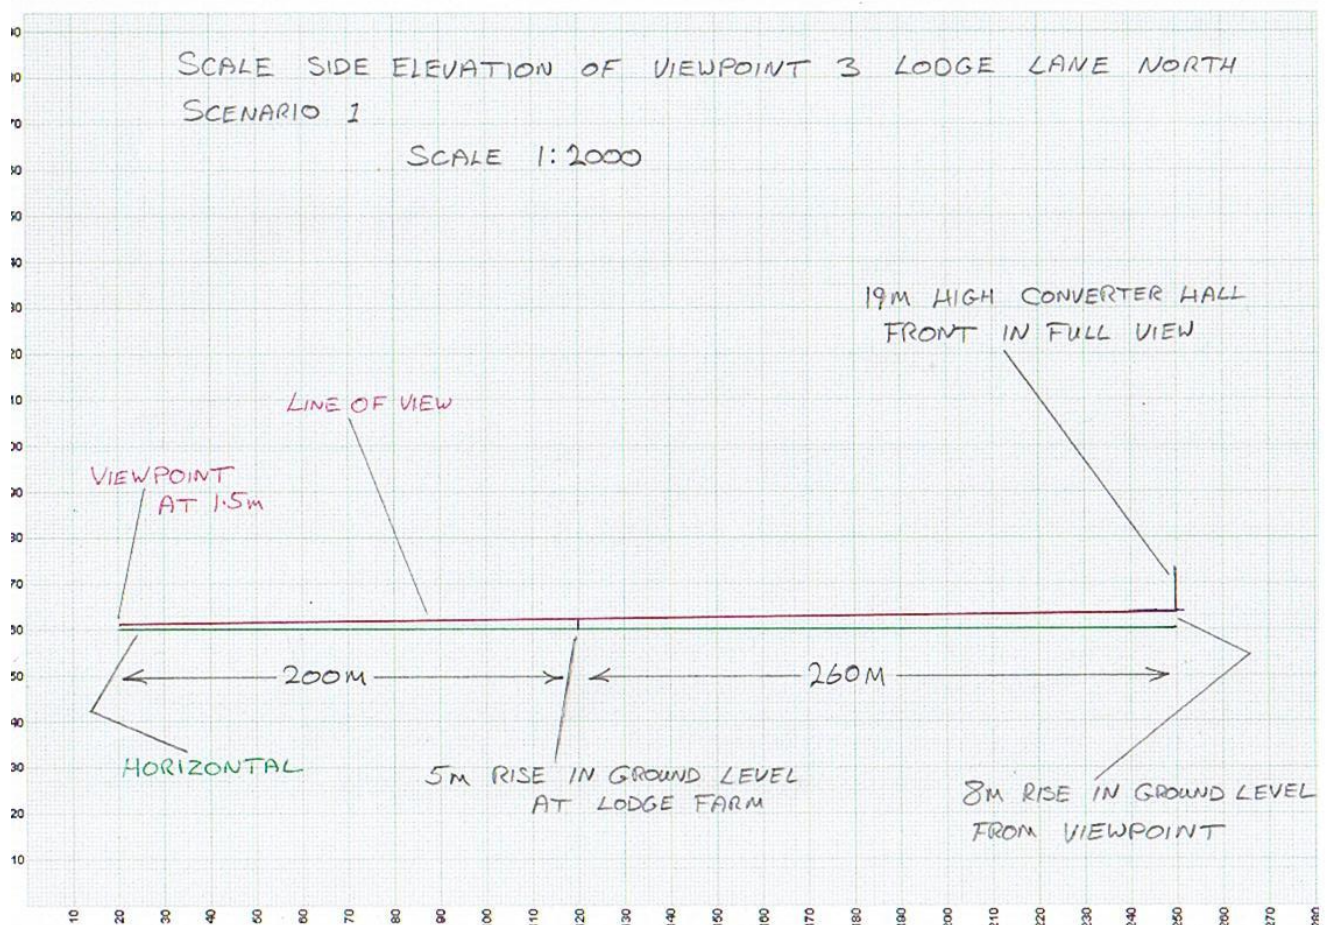 SCALE SIDE ELEVATION OF VIEWPOINT 3 LODGE LANE NORTH
SCENARIO 1
SCALE 1:2000
19M HIGH CONVERTER HALL
FRONT IN FULL VIEW
LINE OF VIEW
VIEWPOINT
AT 1.5M
200M
260M
HORIZONTAL
5M RISE IN GROUND LEVEL
AT LODGE FARM
8M RISE IN GROUND LEVEL
FROM VIEWPOINT
20
10
10 20 30 40 50 60 70 80 90 100 110 120 130 140 150 160 170 180 190 200 210 220 230 240 250 260 270 280